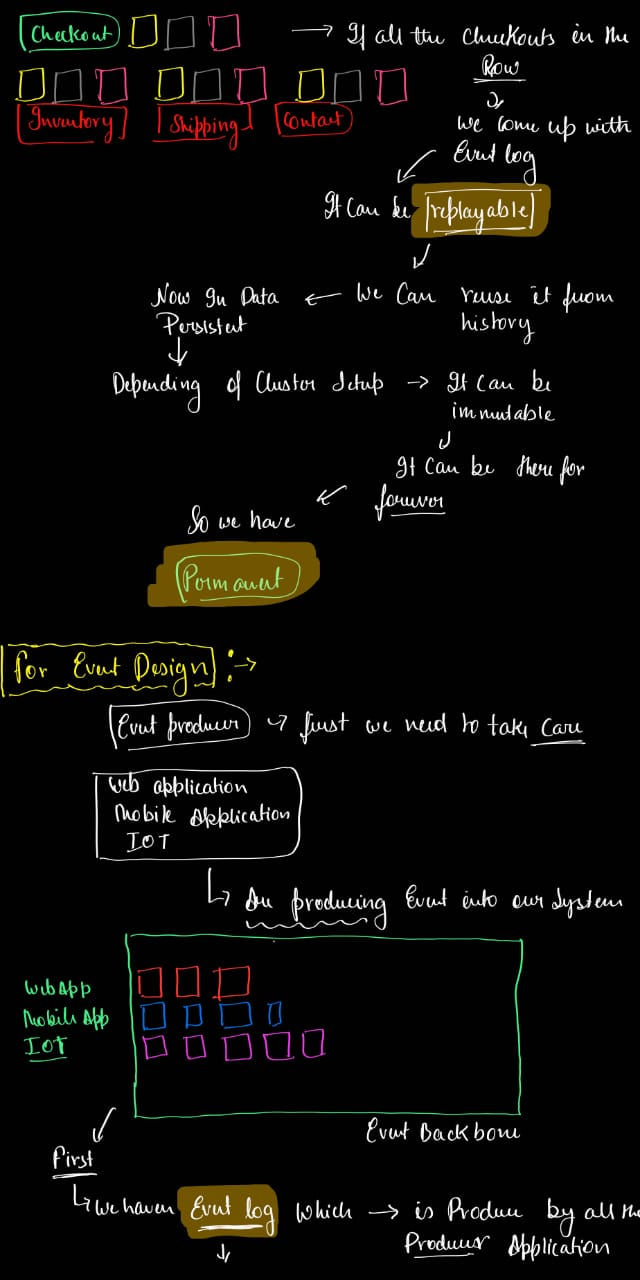 Checkout → If all the checkouts in the
Row
Inventory Shipping Contact
we come up with
Event log
It Can be replayable
Now In Data ← We Can reuse it from
Persistent history
Depending of Cluster Setup → It Can be
immutable
It Can be there for
forever
So we have
Permanent
for Event Design :→
Event producer → first we need to take Care
Web application
Mobile Application
IOT
Are producing Event into our System
Web App
Mobile App
IOT
Event Backbone
First
we haven Event log which → is Produce by all the
Producer Application